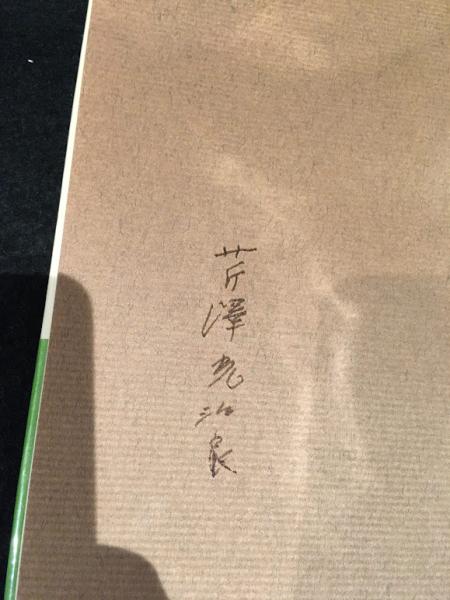 芹澤光治良